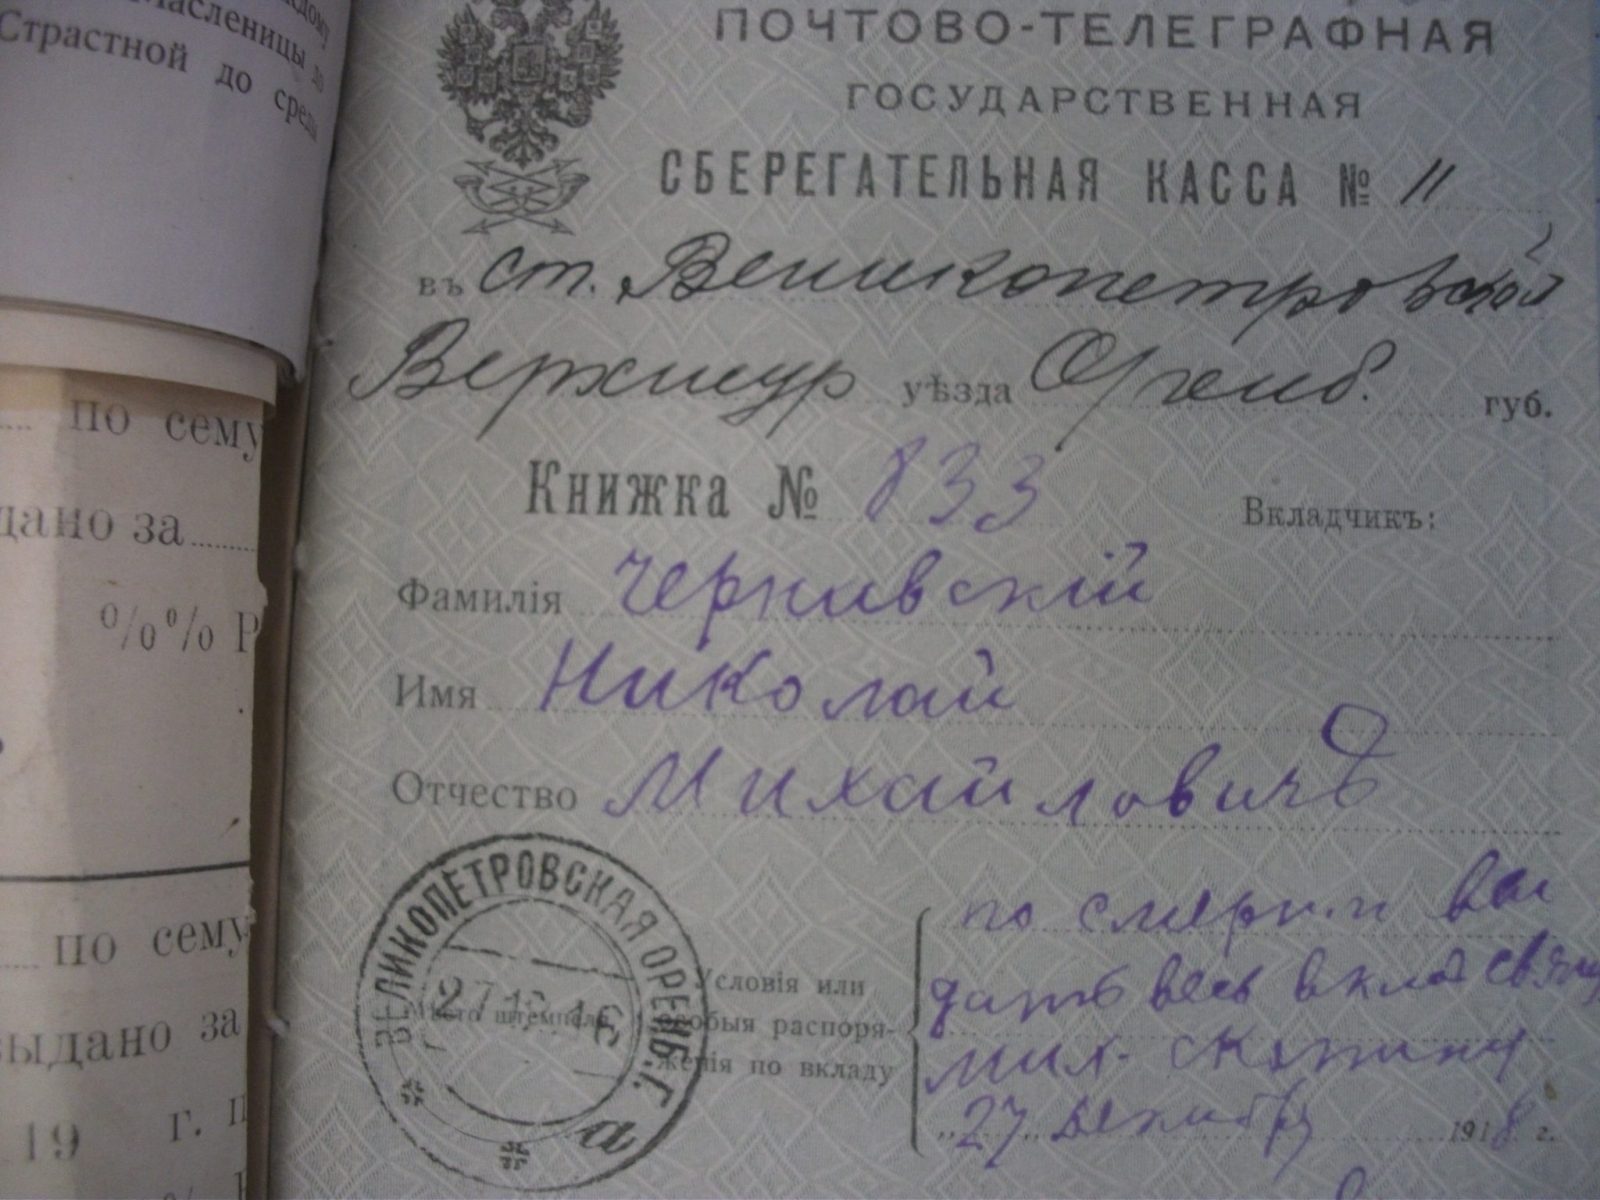 Масленицы до
Страстной до среды
по сему
дано за
%% Р
по сему
выдано за
19 г. п
ПОЧТОВО-ТЕЛЕГРАФНАЯ
ГОСУДАРСТВЕННАЯ
СБЕРЕГАТЕЛЬНАЯ КАССА № 11
въ ст. Великопетровской
Верхнеур уѣзда Оренб. губ.
Книжка № 833 Вкладчикъ:
Фамилія Чернивскій
Имя Николай
Отчество Михайловичъ
ВЕЛИКОПЕТРОВСКАЯ ОРЕНБ. Г.
а
27 12 16
Мѣсто штемпеля
Условія или
особыя распоря-
женія по вкладу
по смерти вы
дать весь вклад свящ
мих. Скопину
"27" декабря 1918 г.